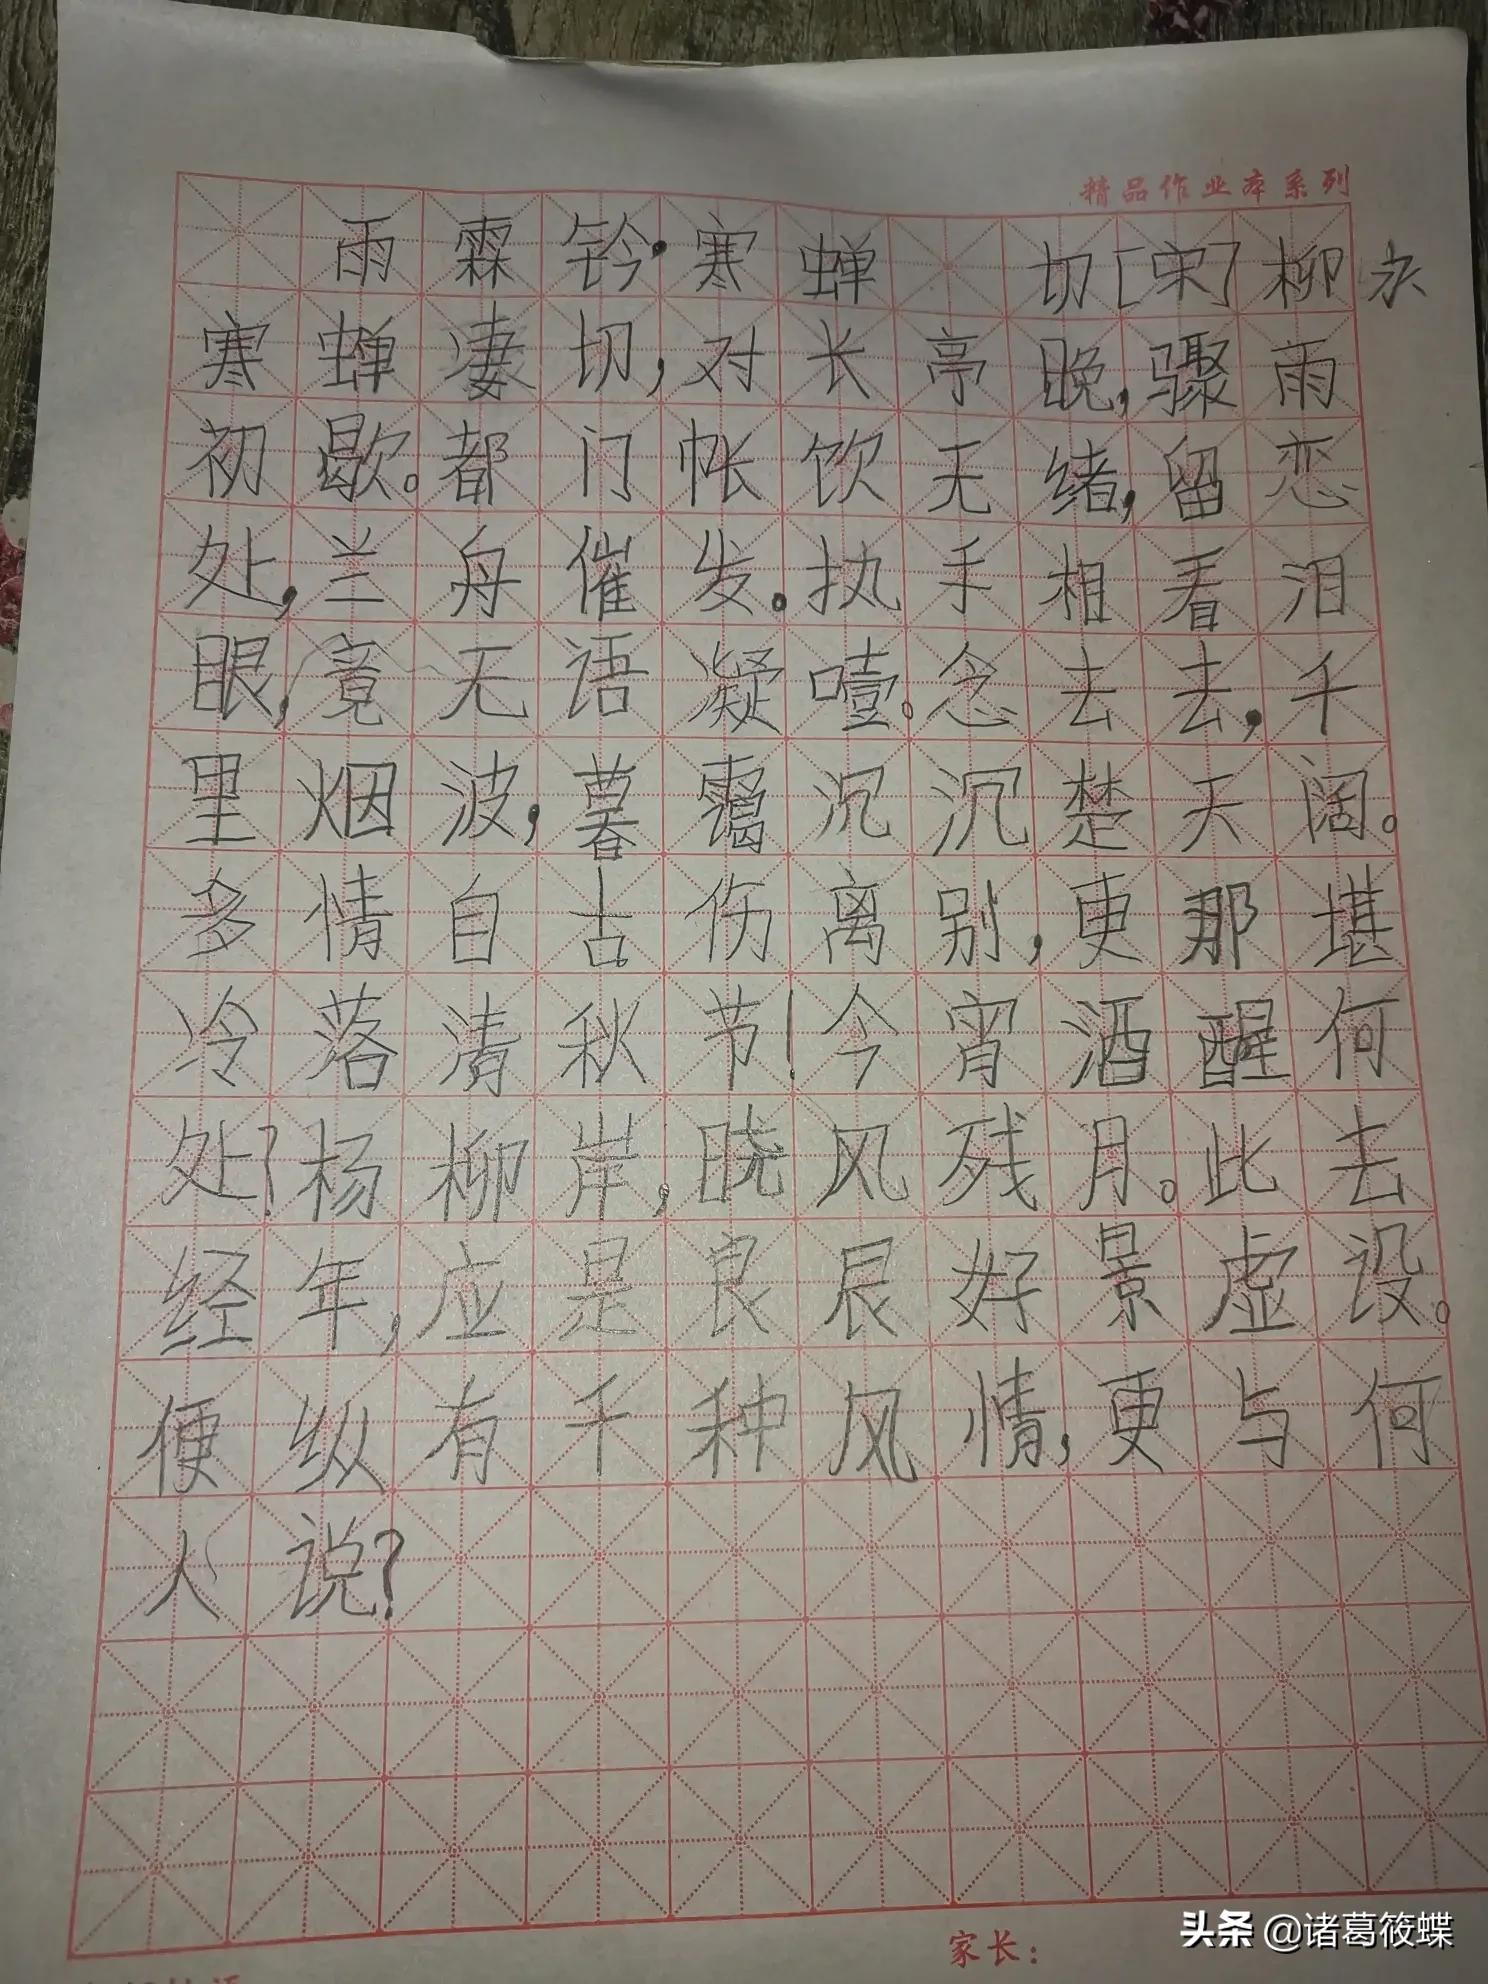 精品作业本系列
雨霖铃·寒蝉 切[宋]柳永
寒蝉凄切,对长亭晚,骤雨
初歇。都门帐饮无绪,留恋
处,兰舟催发.执手相看泪
眼,竟无语凝噎。念去去,千
里烟波,暮霭沉沉楚天阔。
多情自古伤离别,更那堪
冷落清秋节!今宵酒醒何
处?杨柳岸,晓风残月。此去
经年,应是良辰好景虚设。
便纵有千种风情,更与何
人说?
家长：
头条 @诸葛筱蝶